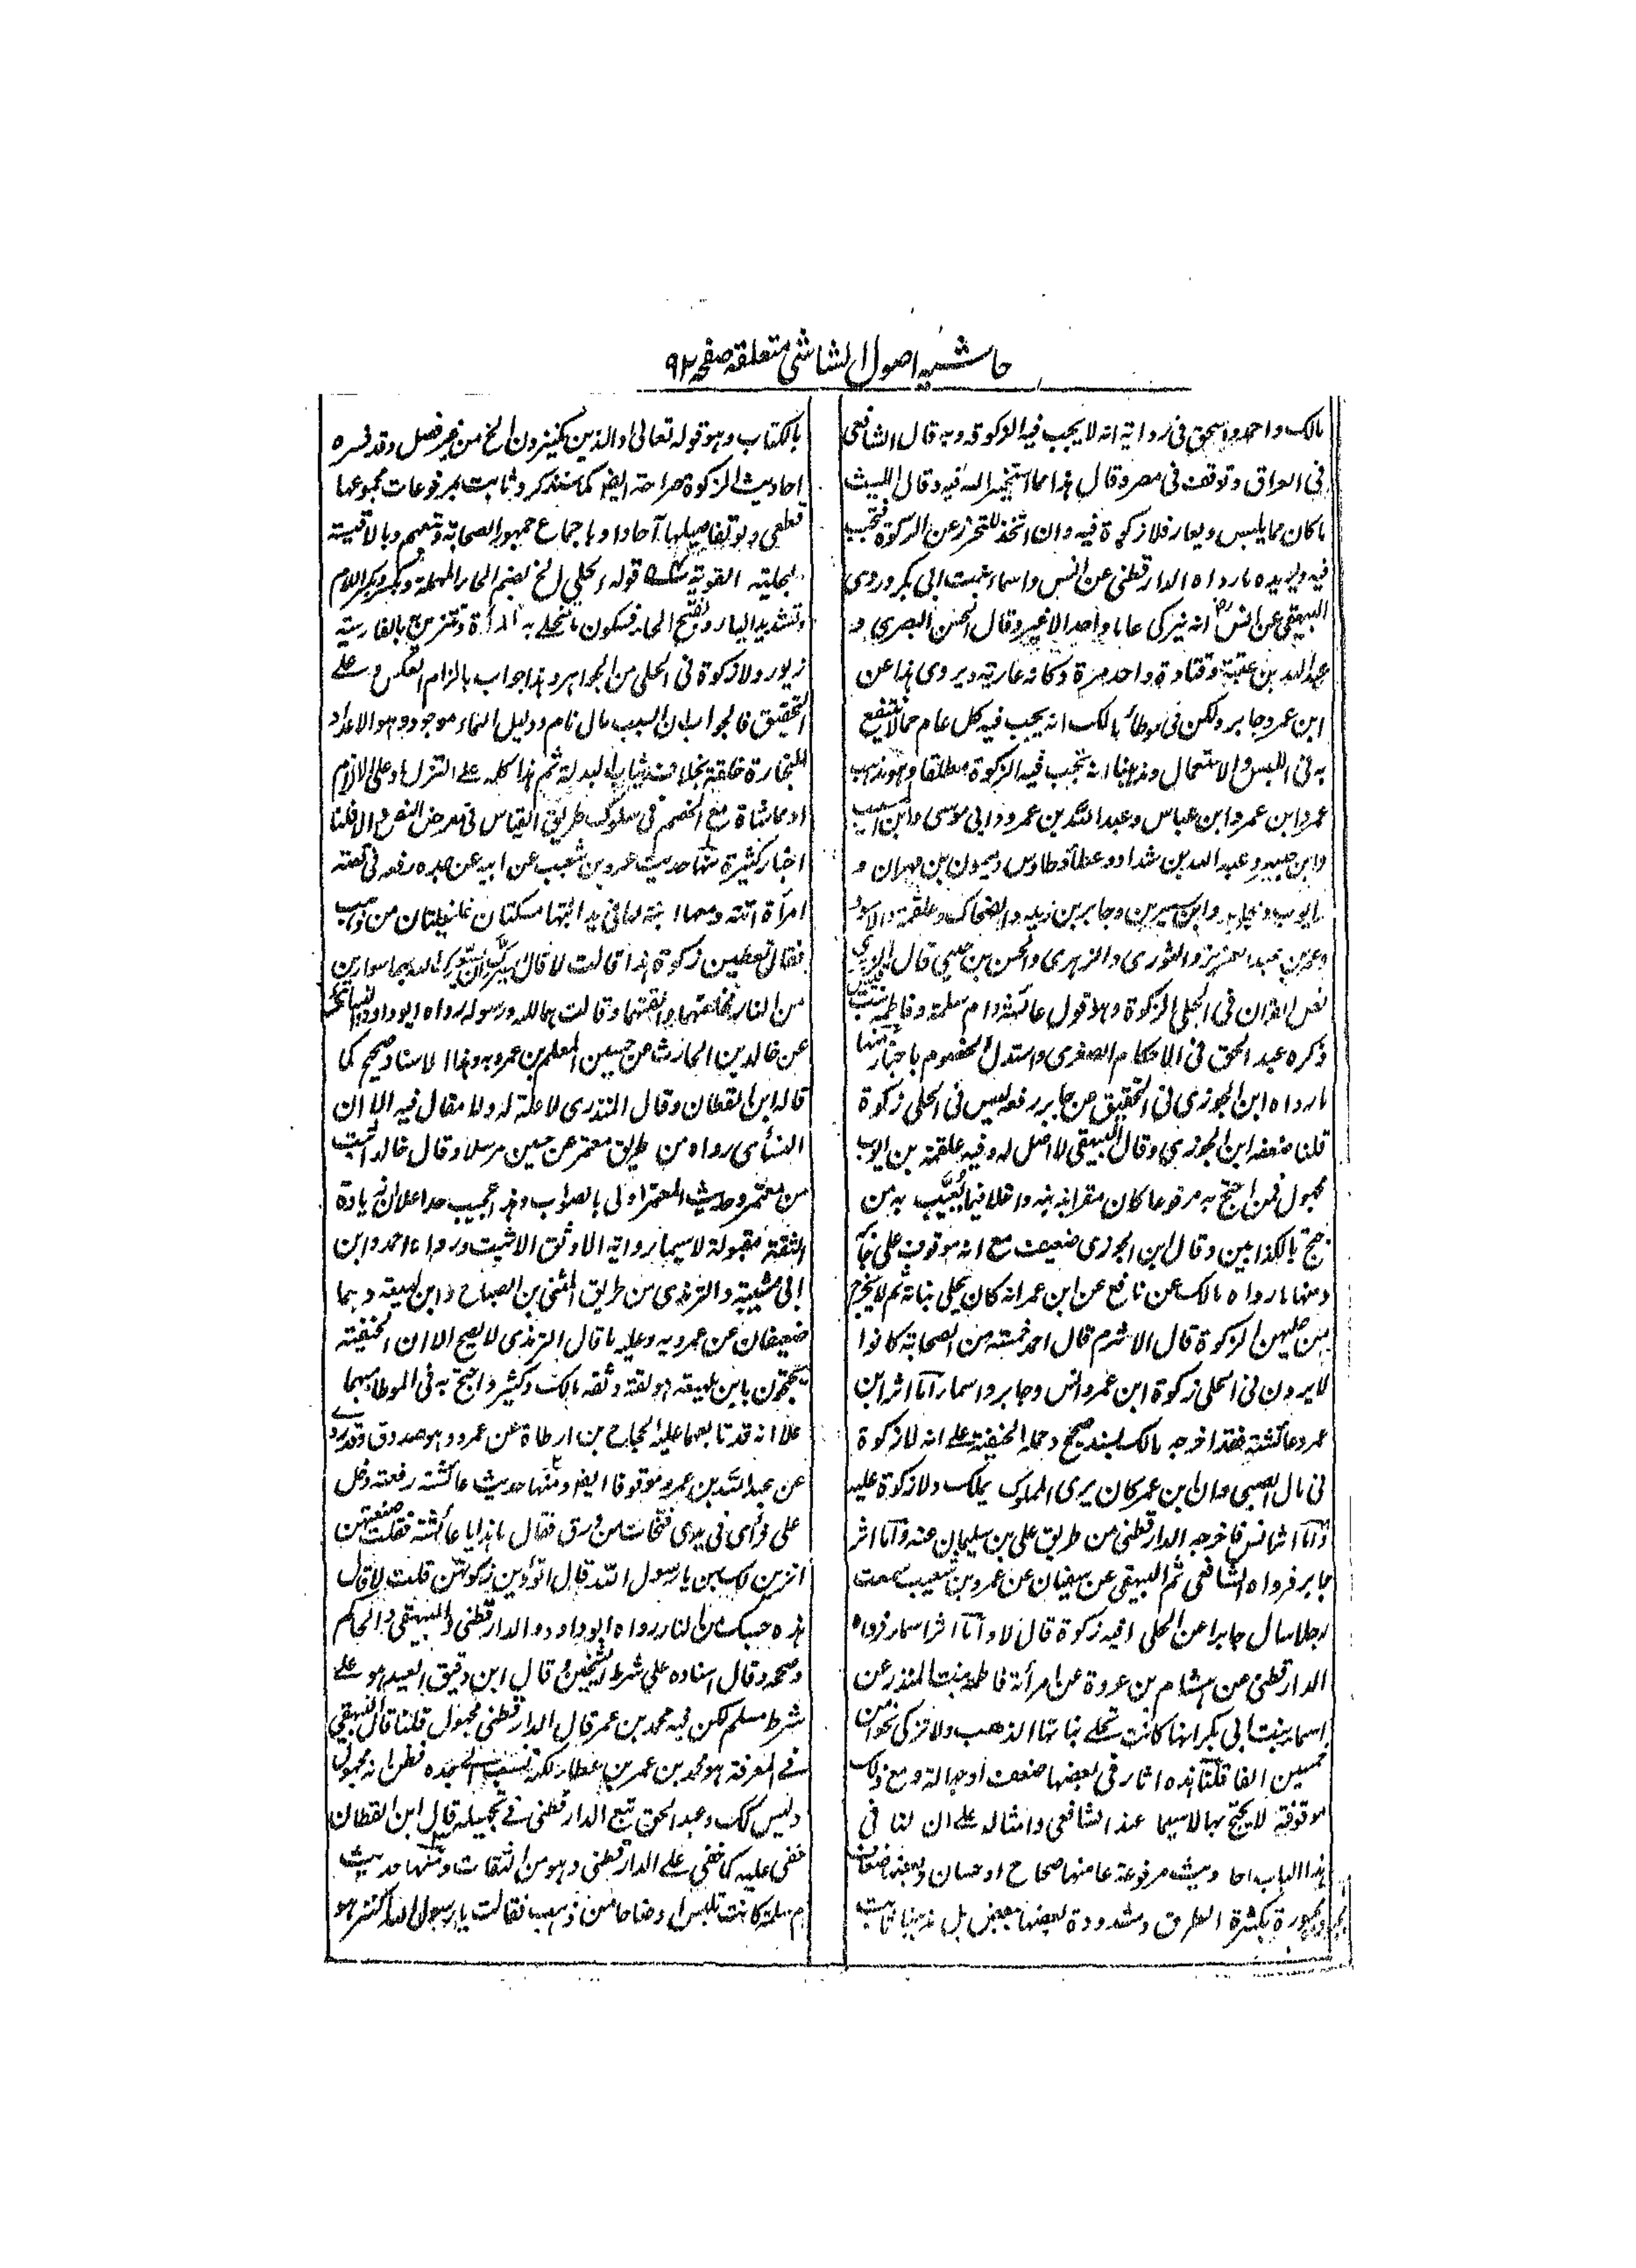 حاشیہ اصول الشاشی متعلقہ صفحہ ۹۲
مالک واحمد واسحق فی روایة انه لا یجب فیه الزکوة وبه قال الشافعی
فی العراق وتوقف فی مصر وقال هذا مما استخیر الله فیه وقال اللیث
ما کان مما یلبس ویعار فلا زکوة فیه وان اتخذ للتحرز عن الزکوة فتجب
فیه ویؤیده ما رواه الدارقطنی عن انس واسماء بنت ابی بکر وروی
البیهقی عن انسؓ انه یزکی عاما واحدا لا غیر وقال الحسن البصری و
عبد الله بن عتبة وقتادة واحد مرة زکاته عاریة ویروی هذا عن
ابن عمر وجابر ولکن فی موطأ مالک انه یجب فیه کل عام مما لا ینتفع
به فی اللبس والاستعمال ومذهبنا انه تجب فیه الزکوة مطلقا وهو مذهب
عمر وابن عمر وابن عباس وعبد الله بن عمرو وابی موسی وابن المسیب
وابن جبیر وعبد الله بن شداد وعطاء وطاوس ومیمون بن مهران و
ایوب ومجاهد وابن سیرین وجابر بن زید والضحاک وعلقمة والاسود
وعمر بن عبد العزیز والثوری والزهری والحسن بن حیی قال
نص القران فی الحلی الزکوة وهو قول عائشة وام سلمة وفاطمة بنت
ذکره عبد الحق فی الاحکام الصغری واستدل الخصوم باخبار منها
ما رواه ابن الجوزی فی التحقیق عن جابر رفعه لیس فی الحلی زکوة
قلنا ضعفه ابن الجوزی وقال البیهقی لا اصل له وفیه علقمة بن ایوب
مجهول فمن احتج به مرفوعا کان مقرا بذنبه واخلا فیما یعیب به من
یحتج بالکذابین وقال ابن الجوزی ضعیف مع انه موقوف علی جابر
ومنها ما رواه مالک عن نافع عن ابن عمر انه کان یحلی بناته ثم لا یخرج
من حلیهن الزکوة قال الاثرم قال احمد خمسة من الصحابة کانوا
لا یرون فی الحلی زکوة ابن عمر وانس وجابر واسماء اما اثر ابن
عمر وعائشة فقد اخرجه مالک بسند صحیح وحمله الحنفیة علی انه لا زکوة
فی مال الصبی وان ابن عمر کان یری المملوک یملک ولا زکوة علیه
واما اثر انس فاخرجه الدارقطنی من طریق علی بن سلیمان عنه واما اثر
جابر فرواه الشافعی ثم البیهقی عن سفیان عن عمرو بن شعیب سمعت
رجلا سال جابرا عن الحلی افیه زکوة قال لا واما اثر اسماء فرواه
الدارقطنی عن هشام بن عروة عن امرأته فاطمة بنت المنذر عن
اسماء بنت ابی بکر انها کانت تحلی بناتها الذهب ولا تزکی نحوا من
خمسین الفا قلنا هذه اثار فی بعضها ضعف او جهالة ومع ذلک
موقوفة لا یحتج بها لا سیما عند الشافعی وامثاله علی ان لنا فی
هذا الباب احادیث مرفوعة عامتها صحاح او حسان وبعضها ضعاف
مجبورة بکثرة الطرق ومشدودة بعضها ببعض بل مذهبنا ثابت
بالکتاب وهو قوله تعالی والذین یکنزون الخ من غیر فصل وقد فسره
احادیث الزکوة صراحة ایضا کما سنذکر وثابت بمرفوعات مجموعها
قطعی ولو تفاصیلها آحادا وباجماع جمهور الصحابة ومعهم وبالاقیسة
الجلیة القویة قوله الحلی الخ بضم الحاء المهملة وبکسر وبکسر اللام
وتشدید الیاء وبفتح الحاء فسکون ما تتحلی به المرأة وتتزین بالفارسیة
زیور ولا زکوة فی الحلی من الجواهر وهذا جواب بالزام العکس وعلی
التحقیق فالجواب ان السبب مال نام ودلیل النماء موجود وهو الاعداد
للتجارة خلقة بخلاف ثیاب البذلة ثم هذا کله علی التنزل وعلی الالزام
او مماشاة مع الخصم فی سلوک طریق القیاس فی معرض النص والا فلنا
اخبار کثیرة منها حدیث عمرو بن شعیب عن ابیه عن جده رفعه فی قصة
امرأة اتته ومعها ابنة لها فی ید ابنتها مسکتان غلیظتان من ذهب
فقال تعطین زکوة هذا قالت لا قال أیسرک ان یسورک الله بهما سوارین
من النار فخلعتهما والقتهما وقالت هما لله ورسوله رواه ابو داود
عن خالد بن الحارث عن حسین المعلم بن عمرو به وهذا الاسناد صحیح کما
قاله ابن القطان وقال المنذری لا علة له ولا مقال فیه الا ان
النسأی رواه من طریق معتمر عن حسین مرسلا وقال خالد اثبت
من معتمر وحدیث المعتمر اولی بالصواب وهذا عجیب جدا علی ان زیادة
الثقة مقبولة لا سیما روایة الاوثق الاثبت ورواه احمد وابن
ابی شیبة والترمذی من طریق المثنی بن الصباح وابن لهیعة وهما
ضعیفان عن عمرو به وعلیه ما قال الترمذی لا یصح الا ان الحنفیة
یحتجون بابن لهیعة هو ثقة وثقه مالک وکثیر واحتج به فی الموطا مبهما
علا انه قد تابعهما علیه الحجاج بن ارطاة عن عمرو وهو صدوق وقد روی
عن عبد الله بن عمرو موقوفا ایضا ومنها حدیث عائشة رفعته دخل
علی فرأی فی یدی فتخات من ورق فقال ما هذا یا عائشة فقلت صنعتهن
اتزین لک بهن یا رسول الله قال اتؤدین زکوتهن قلت لا قال
هذه حسبک من النار رواه ابو داود والدارقطنی والبیهقی والحاکم
وصححه وقال اسناده علی شرط الشیخین وقال ابن دقیق العید هو علی
شرط مسلم لکن فیه محمد بن عمر قال الدارقطنی مجهول قلنا قال البیهقی
فی المعرفة هو محمد بن عمر بن عطاء لکنه نسب الی جده فظن انه مجهول
ولیس کک وعبد الحق تبع الدارقطنی فی تجهیله قال ابن القطان
خفی علیه کما خفی علی الدارقطنی وهو من الثقات ومنها حدیث
ام سلمة کانت تلبس اوضاحا من ذهب فقالت یا رسول الله اکنز هو